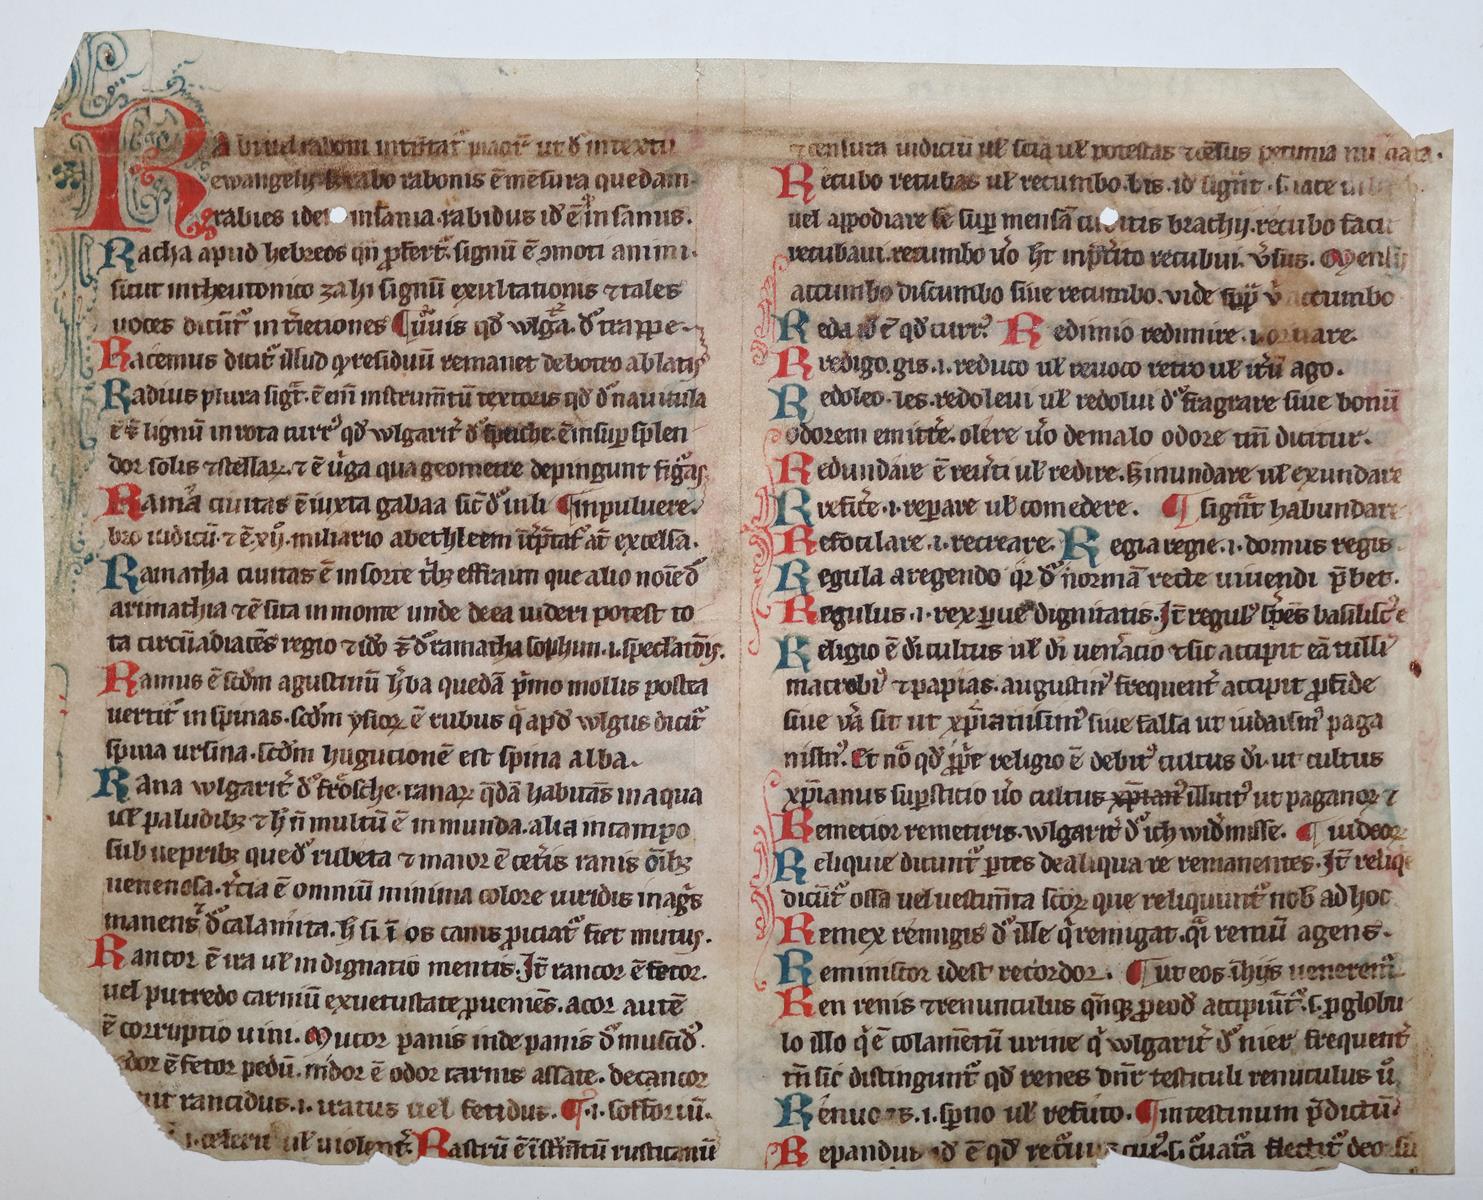 ewangelii Rabo rabonis ē mēsura quedam.
rabies idē insania. rabidus id ē insanus.
Racha apud hebreos qn̄ ꝓfert᷑ signū ē ↄmoti animi.
sicut in theutonico zahi signū exultationis ⁊ tales
uoces dicūt᷑ int̄iectiones ¶ q̄uis qd̓ wlga. d᷑ trappe.
Racemus dicit᷑ illud qd̓ residuū remanet de botro ablatis
Radius plura sigt̄. ē em̄ instrum̄tū textoris qd̓ d᷑ nauicula
lignū in rota curr᷒ qd̓ wlgarit̄ d᷑ speiche. ē insuꝑ splen
dor solis ⁊ stellaꝝ. ⁊ ē ūga qua geometre depingunt figᵃs
Rama ciuitas ē iuxta gabaa sic̄ d᷑ iuli ¶ in puluere.
bro iudicū. ⁊ ē xij. miliario a bethleem īt̄p̄tat᷑ aū excelsa.
Ramatha ciuitas ē in sorte t̄bꝫ effraim que alio noīe d᷑
arimathia ⁊ ē sita in monte unde de ea uideri potest to
ta circūadiacēs regio ⁊ id̓o d᷑ ramatha sophim. i. speclatōis.
Ramus ē scd̓m agustinū h̓ba quedā p̓mo mollis postea
uertit᷑ in spinas. scd̓m ysioꝝ ē rubus q̓ apd̓ wlgus dicit᷑
spina ursina. scd̓m hugucionē est spina alba.
Rana wlgarit̄ d᷑ frösche. ranaꝝ q̄dā habitās in aqua
ul̓ paludibꝫ ⁊ h̓ n̄ multū ē in munda. alia in campo
sub uepribꝫ que d᷑ rubeta ⁊ maior ē cet̄is ranis oībꝫ
uenenosa. t̄cia ē omniū minima colore uiridis in ag̓s
manens d᷑ calamita. h̓ si ī os canis ꝓiciat᷑ fiet mutus.
Rancor ē ira ul̓ indignatio mentis. It̄ rancor ē fetor.
uel putredo carniū ex uetustate ꝓueniēs. acor autē
ē corruptio uini. Mucor panis inde panis d᷑ muscid᷒.
dor ē fetor pedū. nidor ē odor carnis assate. de rancor
rancidus. i. iratus uel fetidus. ¶ .i. fossoriū.
i. celerit̄ ul̓ uiolent̄. Rastrū ē īstrm̄tū rusticanū
⁊ censura iudiciū ul̓ scīa ul̓ potestas ⁊ cēsus pecunia
Recubo recubas ul̓ recumbo. bis. id̓ signt̄. s. iace
uel appodiare se suꝑ mensā cubitis brachij. recubo facit
recubaui. recumbo ūo h̄t in p̄t̄ito recubui. v̄sus. Mensis
accumbo discumbo siue recumbo. vide sup̄ accumbo
Reda id̓ ē qd̓ curr᷒ Redimio redimire. i. ornare.
Redigo. gis. i. reduco ul̓ reuoco retro ul̓ it̄ū ago.
Redoleo. les. redoleui ul̓ redolui d᷑ fragrare siue bonū
odorem emitt̄e. olere ūo de malo odore tm̄ dicitur.
Redundare ē reūti ul̓ redire. ⁊ inundare ul̓ exundare
Reficē. i. repare ul̓ comedere. ¶ signt̄ habundare
Refocilare. i. recreare. Regia regie. i. domus regis
Regula a regendo q̄r d᷑ normā recte uiuendi p̄bet.
Regulus. i. rex ꝑue dignitatis. It̄ regul᷒ sp̄es basilisc᷒ e
Religio ē di cultus ul̓ di uen̄acio ⁊ sic accipit eā tulli᷒
macrobi᷒ ⁊ papias. augustin᷒ frequent̄ accipit ꝓ fide
siue v̄a sit ut xp̄ianisim᷒ siue falsa ut iudaism᷒ paga
nism᷒. Et nō qd̓ ꝓp̄e religio ē debit᷒ cultus di. ut cultus
xp̄ianus suꝑsticio ūo cultus xp̄ian᷒ illicit᷒ ut paganoꝝ ⁊
Remetior remetiris. wlgarit̄ d᷑ ich wid̓ misse. ¶ iudeoꝝ
Reliquie dicunt᷑ ꝑtes de aliqua re remanentes. It̄ reliqe
dicūt᷑ ossa uel uestim̄ta scoꝝ que reliquunt᷑ nob̓ ad hoc
Remex remigis d᷑ ille q̓ remigat. qᵃi remū agens.
Reminiscor idest recordor. ¶ ut eos. ī hijs ueneremr̄
Ren renis ⁊ renunculus qn̄qꝫ ꝓ eod̓ accipiūt᷑. s. ꝓ globu
lo illo q̓ ē colam̄tū urine q̓ wlgarit̄ d᷑ nier frequent̄
tn̄ sic distingunt᷑ qd̓ renes dn̄r testiculi renuculus ū
Renuo is. i. sp̄no ul̓ refuto. ¶ intestinum p̄dictū
Repandus id̓ ē qd̓ recuruus